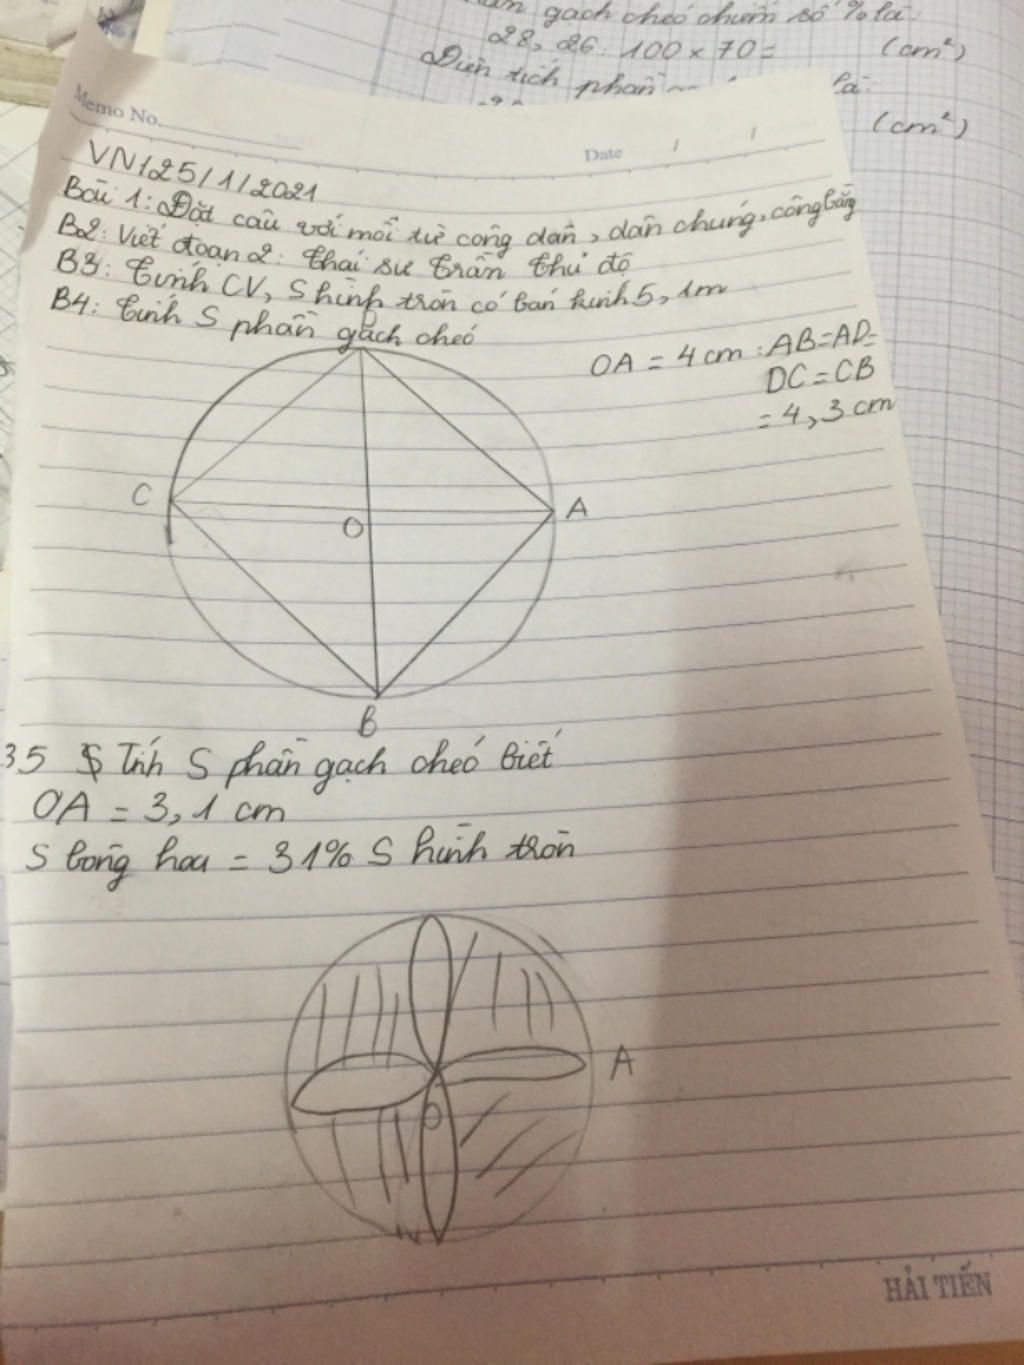 gạch chéo chiếm số % là:
28,26 : 100 x 70 = (cm²)
Diện tích phần là:
(cm²)
Memo No.
Date / /
VN/25/1/2021
Bài 1: Đặt câu với mỗi từ công dân, dân chúng, công bằng
B2: Viết đoạn 2: thái sư trần thủ độ
B3: tính CV, S hình tròn có bán kính 5,1m
B4: tính S phần gạch chéo
OA = 4 cm : AB = AD =
DC = CB
= 4,3 cm
D
C
O
A
B
B5 Tính S phần gạch chéo biết
OA = 3,1 cm
S bông hoa = 31% S hình tròn
A
O
HẢI TIẾN